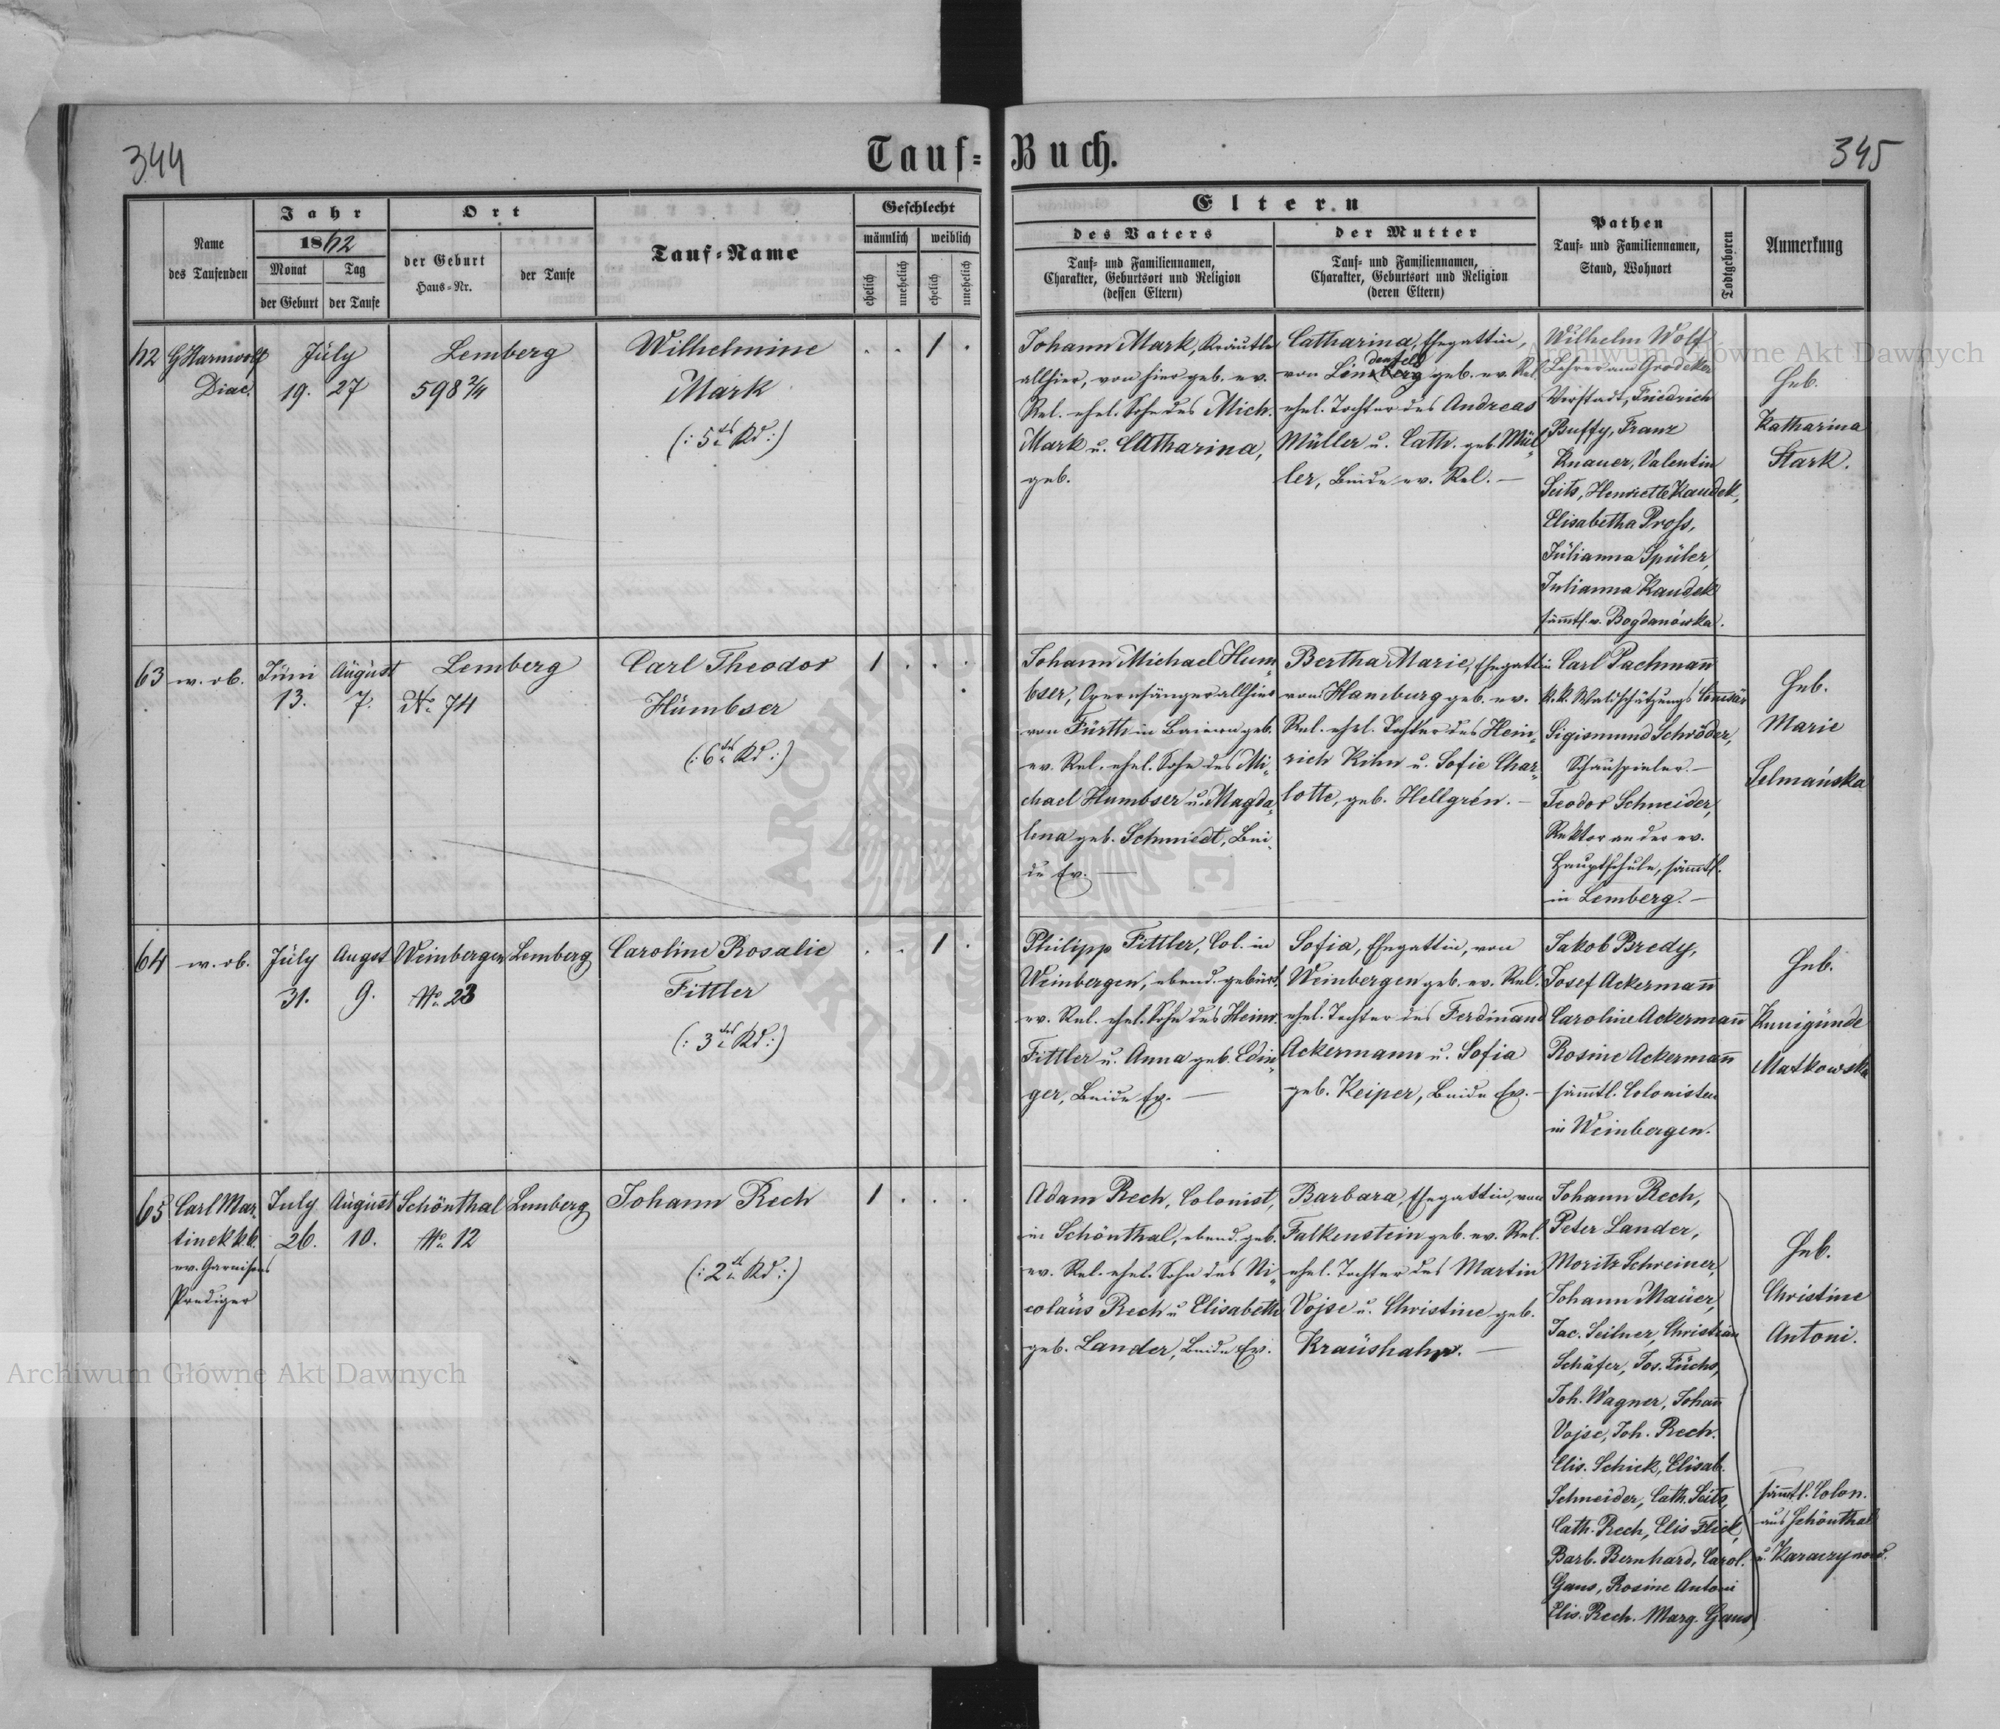 344
Tauf-Buch.
345
Name
des Taufenden
Jahr
1862
Monat
Tag
der Geburt
der Taufe
Ort
der Geburt
Haus-Nr.
der Taufe
Tauf-Name
Geschlecht
männlich
weiblich
ehelich
unehelich
ehelich
unehelich
Eltern
des Vaters
Tauf- und Familiennamen,
Charakter, Geburtsort und Religion
(dessen Eltern)
der Mutter
Tauf- und Familiennamen,
Charakter, Geburtsort und Religion
(deren Eltern)
Pathen
Tauf- und Familiennamen,
Stand, Wohnort
Todtgeboren
Anmerkung
62
G Harmwolf
Diac.
July
19. 27
Lemberg
598 2/4
Wilhelmine
Mark
(: 5tes Kd :)
1
Johann Mark, Kräutler
allhier, von hier geb. ev.
Rel. ehel. Sohn des Mich.
Mark u. Catharina,
geb.
Catharina, Ehegattin,
denfeld
von geb. ev. Rel.
ehel. Tochter des Andreas
Müller u. Cath. geb. Mül-
ler, Beide ev. Rel. —
Wilhelm Wolf
Lehrer am Grodeker
Vorstadt, Friedrich
Buffy, Franz
Knauer, Valentin
Seits, Henriette Kaudek,
Elisabetha Pross,
Julianna Spüler,
Julianna Kaudek
sämmtl. v. Bogdanówka.
Heb.
Katharina
Stark.
63
w. ob.
Juni
13.
August
7.
Lemberg
No. 74
Carl Theodor
Humbser
(: 6tes Kd :)
1
Johann Michael Hum-
bser, Opernsänger allhier
von Fürth in Baiern geb.
ev. Rel. ehel. Sohn des Mi-
chael Humbser u. Magda-
lena geb. Schmiedt, Bei-
de Ev. —
Bertha Marie, Ehegattin
von Hamburg geb. ev.
Rel. ehel. Tochter des Hein-
rich Kihn u. Sofie Char-
lotte, geb. Hellgrén. —
Carl Pachmann
k.k. Waldschätzungs Commissär
Sigismund Schröder,
Schauspieler. —
Teodor Schneider,
Rektor an der ev.
Hauptschule, sämmtl.
in Lemberg. —
Heb.
Marie
Selmańska
64
w. ob.
July
31.
Augst
9.
Weinbergen
No. 23
Lemberg
Caroline Rosalie
Fittler
(: 3tes Kd :)
1
Philipp Fittler, Col. in
Weinbergen, ebend. gebürt.
ev. Rel. ehel. Sohn des Heinr.
Fittler u. Anna geb. Edin-
ger, Beide Ev. —
Sofia, Ehegattin, von
Weinbergen geb. ev. Rel.
ehel. Tochter des Ferdinand
Ackermann u. Sofia
geb. Keiper, Beide Ev. —
Jakob Bredy,
Josef Ackermann
Caroline Ackermann
Rosine Ackermann
sämmtl. Colonisten
in Weinbergen.
Heb.
Kunigunde
Matkowska
65
Carl Mar-
tinek k.k.
ev. Garnisons
Prediger
July
26.
August
10.
Schönthal
No. 12
Lemberg
Johann Rech
(: 2tes Kd :)
1
Adam Rech, Colonist,
in Schönthal, ebend. geb.
ev. Rel. ehel. Sohn des Ni-
colaus Rech u. Elisabeth
geb. Lander, Beide Ev.
Barbara, Ehegattin, von
Falkenstein geb. ev. Rel.
ehel. Tochter des Martin
Vojse u. Christine geb.
Kraushahr. —
Johann Rech,
Peter Lander,
Moritz Schreiner,
Johann Mauer,
Jac. Seibner, Christian
Schäfer, Jos. Fuchs,
Joh. Wagner, Johann
Vojse, Joh. Rech.
Elis. Schick, Elisab.
Schneider, Cath. Seits,
Cath. Rech, Elis Flick,
Barb. Bernhard, Carol.
Gans, Rosine Antoni
Elis. Rech. Marg. Gans
Heb.
Christine
Antoni.
sämmtl. Colon.
aus Schönthal
u. Karaczynow.
Archiwum Główne Akt Dawnych
Archiwum Główne Akt Dawnych